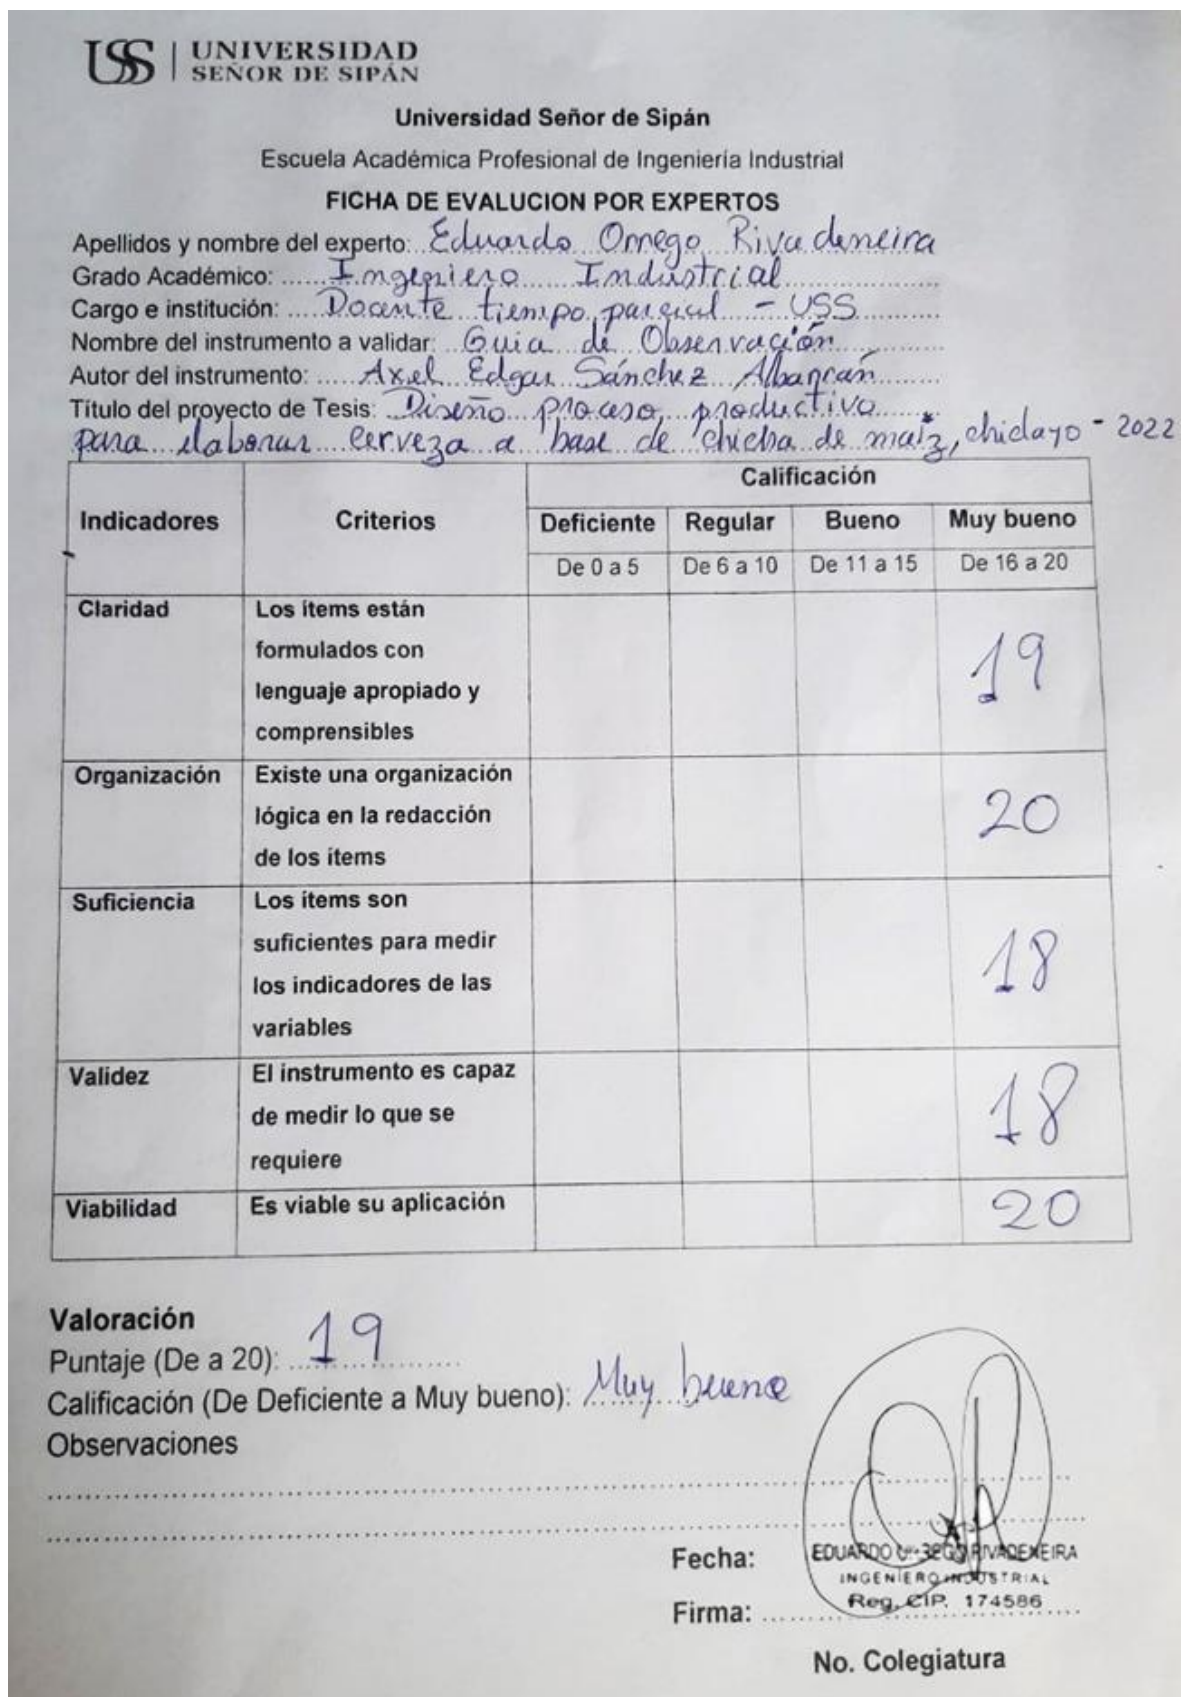 USS | UNIVERSIDAD
SEÑOR DE SIPÁN
Universidad Señor de Sipán
Escuela Académica Profesional de Ingeniería Industrial
FICHA DE EVALUCION POR EXPERTOS
Apellidos y nombre del experto: Eduardo Orrego Rivadeneira
Grado Académico: ...... Ingeniero Industrial
Cargo e institución: .... Docente tiempo parcial - USS
Nombre del instrumento a validar: Guia de Observación
Autor del instrumento: ..... Axel Edgar Sánchez
Título del proyecto de Tesis: Diseño proceso productivo
para elaborar cerveza a base de chicha de maíz, chiclayo - 2022
Calificación
Indicadores Criterios Deficiente Regular Bueno Muy bueno
De 0 a 5 De 6 a 10 De 11 a 15 De 16 a 20
Claridad Los ítems están
formulados con
lenguaje apropiado y
comprensibles
19
Organización Existe una organización
lógica en la redacción
de los ítems
20
Suficiencia Los ítems son
suficientes para medir
los indicadores de las
variables
18
Validez El instrumento es capaz
de medir lo que se
requiere
18
Viabilidad Es viable su aplicación 20
Valoración
Puntaje (De a 20): 19
Calificación (De Deficiente a Muy bueno): Muy bueno
Observaciones
Fecha:
EDUARDO RIVADENEIRA
INGENIERO INDUSTRIAL
Reg. CIP. 174586
Firma:
No. Colegiatura